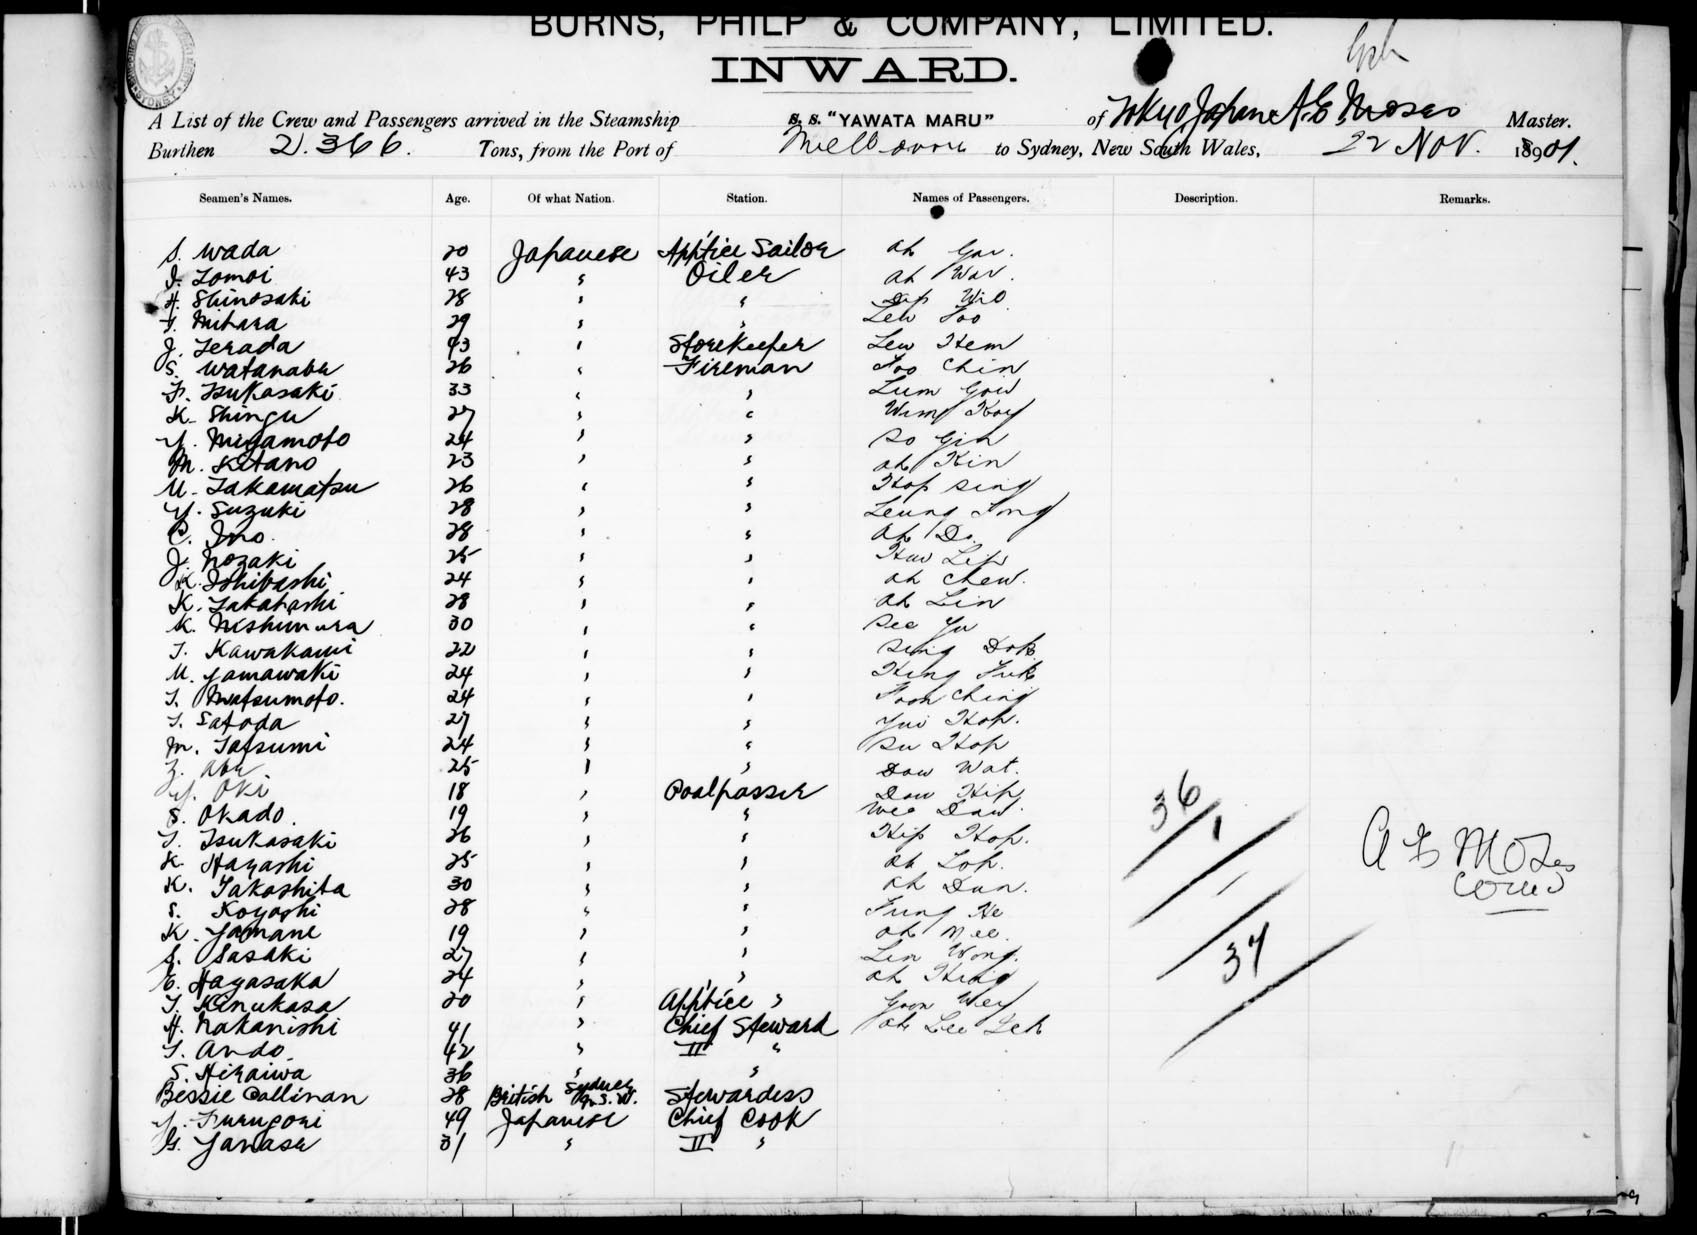 BURNS, PHILP & COMPANY, LIMITED.
INWARD.
A List of the Crew and Passengers arrived in the Steamship S. S. "YAWATA MARU" of Tokyo Japan A. E. Moses Master.
Burthen 2.366. Tons, from the Port of Melbourne to Sydney, New South Wales, 22 Nov. 1901.
Seamen's Names. Age. Of what Nation. Station. Names of Passengers. Description. Remarks.
S. Wada 20 Japanese App'tice Sailor Ah Gar.
I. Tomoi 43 " Oiler Ah War.
H. Shinosaki 28 " "
T. Mihara 29 " " Lew Foo
J. Terada 43 " Storekeeper Lew Hem
S. Watanabe 26 " Fireman Foo Chin
F. Tsukasaki 33 " " Lum Gow
K. Shingu 27 " "
Y. Miyamoto 24 " " So Gin
M. Kitano 23 " " Ah Kin
U. Takamatsu 26 " " Hop Sing
Y. Suzuki 28 " " Leung Tong
C. Ino. 28 " " Ah Do.
J. Nozaki 25 " "
K. Ishibashi 24 " " Ah Chew.
K. Takahashi 28 " " Ah Lin
K. Nishimura 30 " " See Yu
T. Kawakami 22 " " Sing Dok
U. Yamawaki 24 " " Hing Fuk
T. Matsumoto. 24 " " Foon Ching
T. Satoda 27 " " Yui Hop.
M. Tatsumi 24 " " Su Hop
Z. Abe 25 " " Dow Wat.
Y. Oki 18 " Coalpasser Dow Hip
S. Okado. 19 " " Wee Daw.
T. Tsukasaki 26 " " Hip Hop.
K. Hayashi 25 " " Ah Loh.
K. Takashita 30 " " Ah Dun.
S. Koyashi 28 " " Fung He
K. Yamane 19 " " Ah Mee.
S. Sasaki 27 " " Lin Wong.
E. Hayasaka 24 " " Ah Hing
T. Kinukasa 20 " App'tice " Goon Wey
H. Nakanishi 41 " Chief Steward Ah Lee Yek
T. Ando. 42 " II "
S. Hiraiwa 36 " "
Bessie Callinan 28 British Sydney N.S.W. Stewardess
Y. Furugori 49 Japanese Chief Cook
G. Yanase 31 " II "
36
1
37
A E Moses